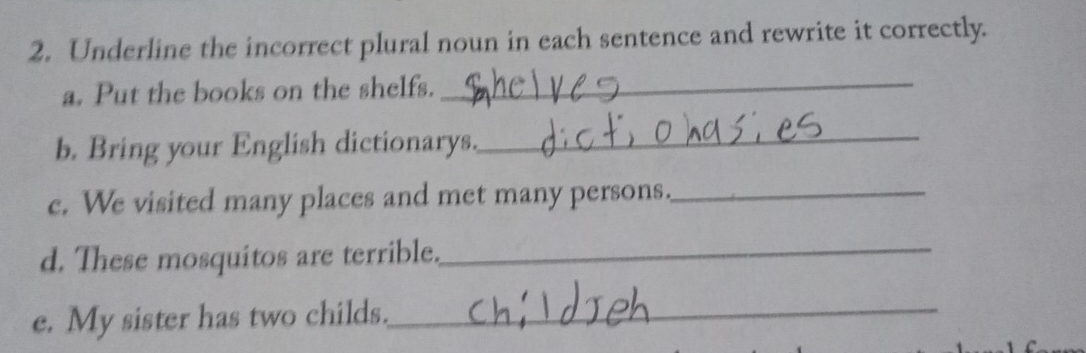 2. Underline the incorrect plural noun in each sentence and rewrite it correctly.
a. Put the books on the shelfs. shelves
b. Bring your English dictionarys. dictionasies
c. We visited many places and met many persons.
d. These mosquitos are terrible.
e. My sister has two childs. children